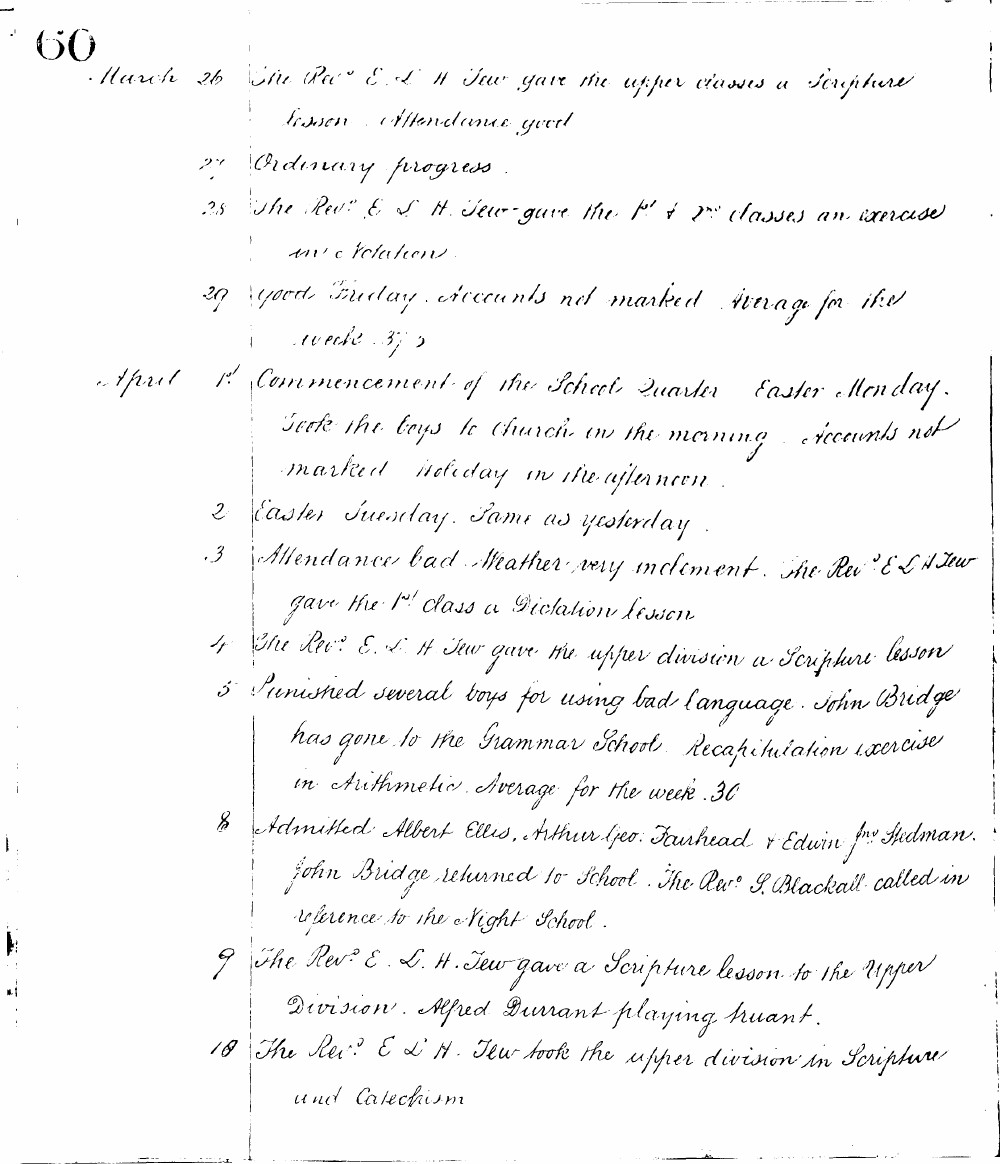 60
March 26 The Revd E. L. H. Tew gave the upper classes a Scripture
lesson. Attendance good
27 Ordinary progress.
28 The Revd E. L. H. Tew gave the 1st & 2nd classes an exercise
in Notation.
29 Good Friday. Accounts not marked. Average for the
week 37
April 1st Commencement of the School Quarter Easter Monday.
Took the boys to church in the morning. Accounts not
marked Holiday in the afternoon.
2 Easter Tuesday. Same as yesterday.
3 Attendance bad. Weather very inclement. The Revd E L H Tew
gave the 1st class a Dictation lesson
4 The Revd E. L. H Tew gave the upper division a Scripture lesson
5 Punished several boys for using bad language. John Bridge
has gone to the Grammar School. Recapitulation exercise
in Arithmetic. Average for the week. 30
8 Admitted Albert Ellis, Arthur Geo. Fairhead & Edwin Jno Stedman.
John Bridge returned to School. The Revd S. Blackall called in
reference to the Night School.
9 The Revd E. L. H. Tew gave a Scripture lesson to the Upper
Division. Alfred Durrant playing truant.
10 The Revd E L H. Tew took the upper division in Scripture
and Catechism